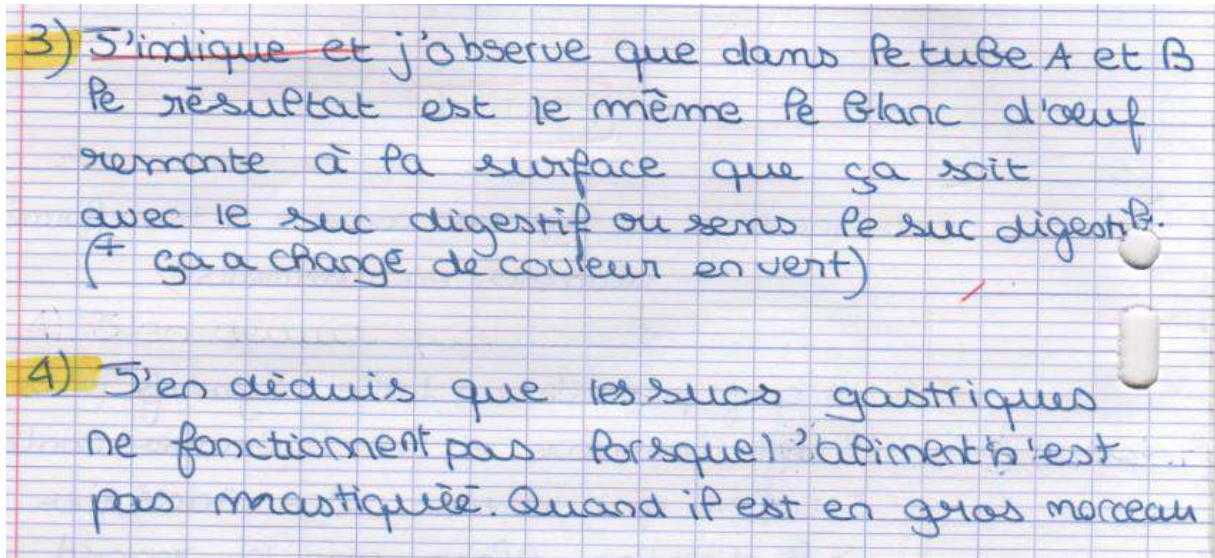 3) J'indique et j'observe que dans le tube A et B
le résultat est le même le blanc d'œuf
remonte à la surface que ça soit
avec le suc digestif ou sens le suc digestif.
(+ ça a changé de couleur en vert)
4) J'en déduis que les sucs gastriques
ne fonctionnent pas lorsque l'aliment n'est
pas mastiquéé. Quand il est en gros morceau